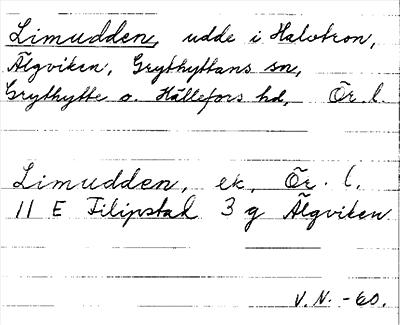 Limudden, udde i Halvtron,
Älgviken, Grythyttans sn,
Grythytte o. Hällefors hd, Ör. l.
Limudden, ek, Ör. l.
11 E Filipstad 3 g Älgviken
V.N. -60.